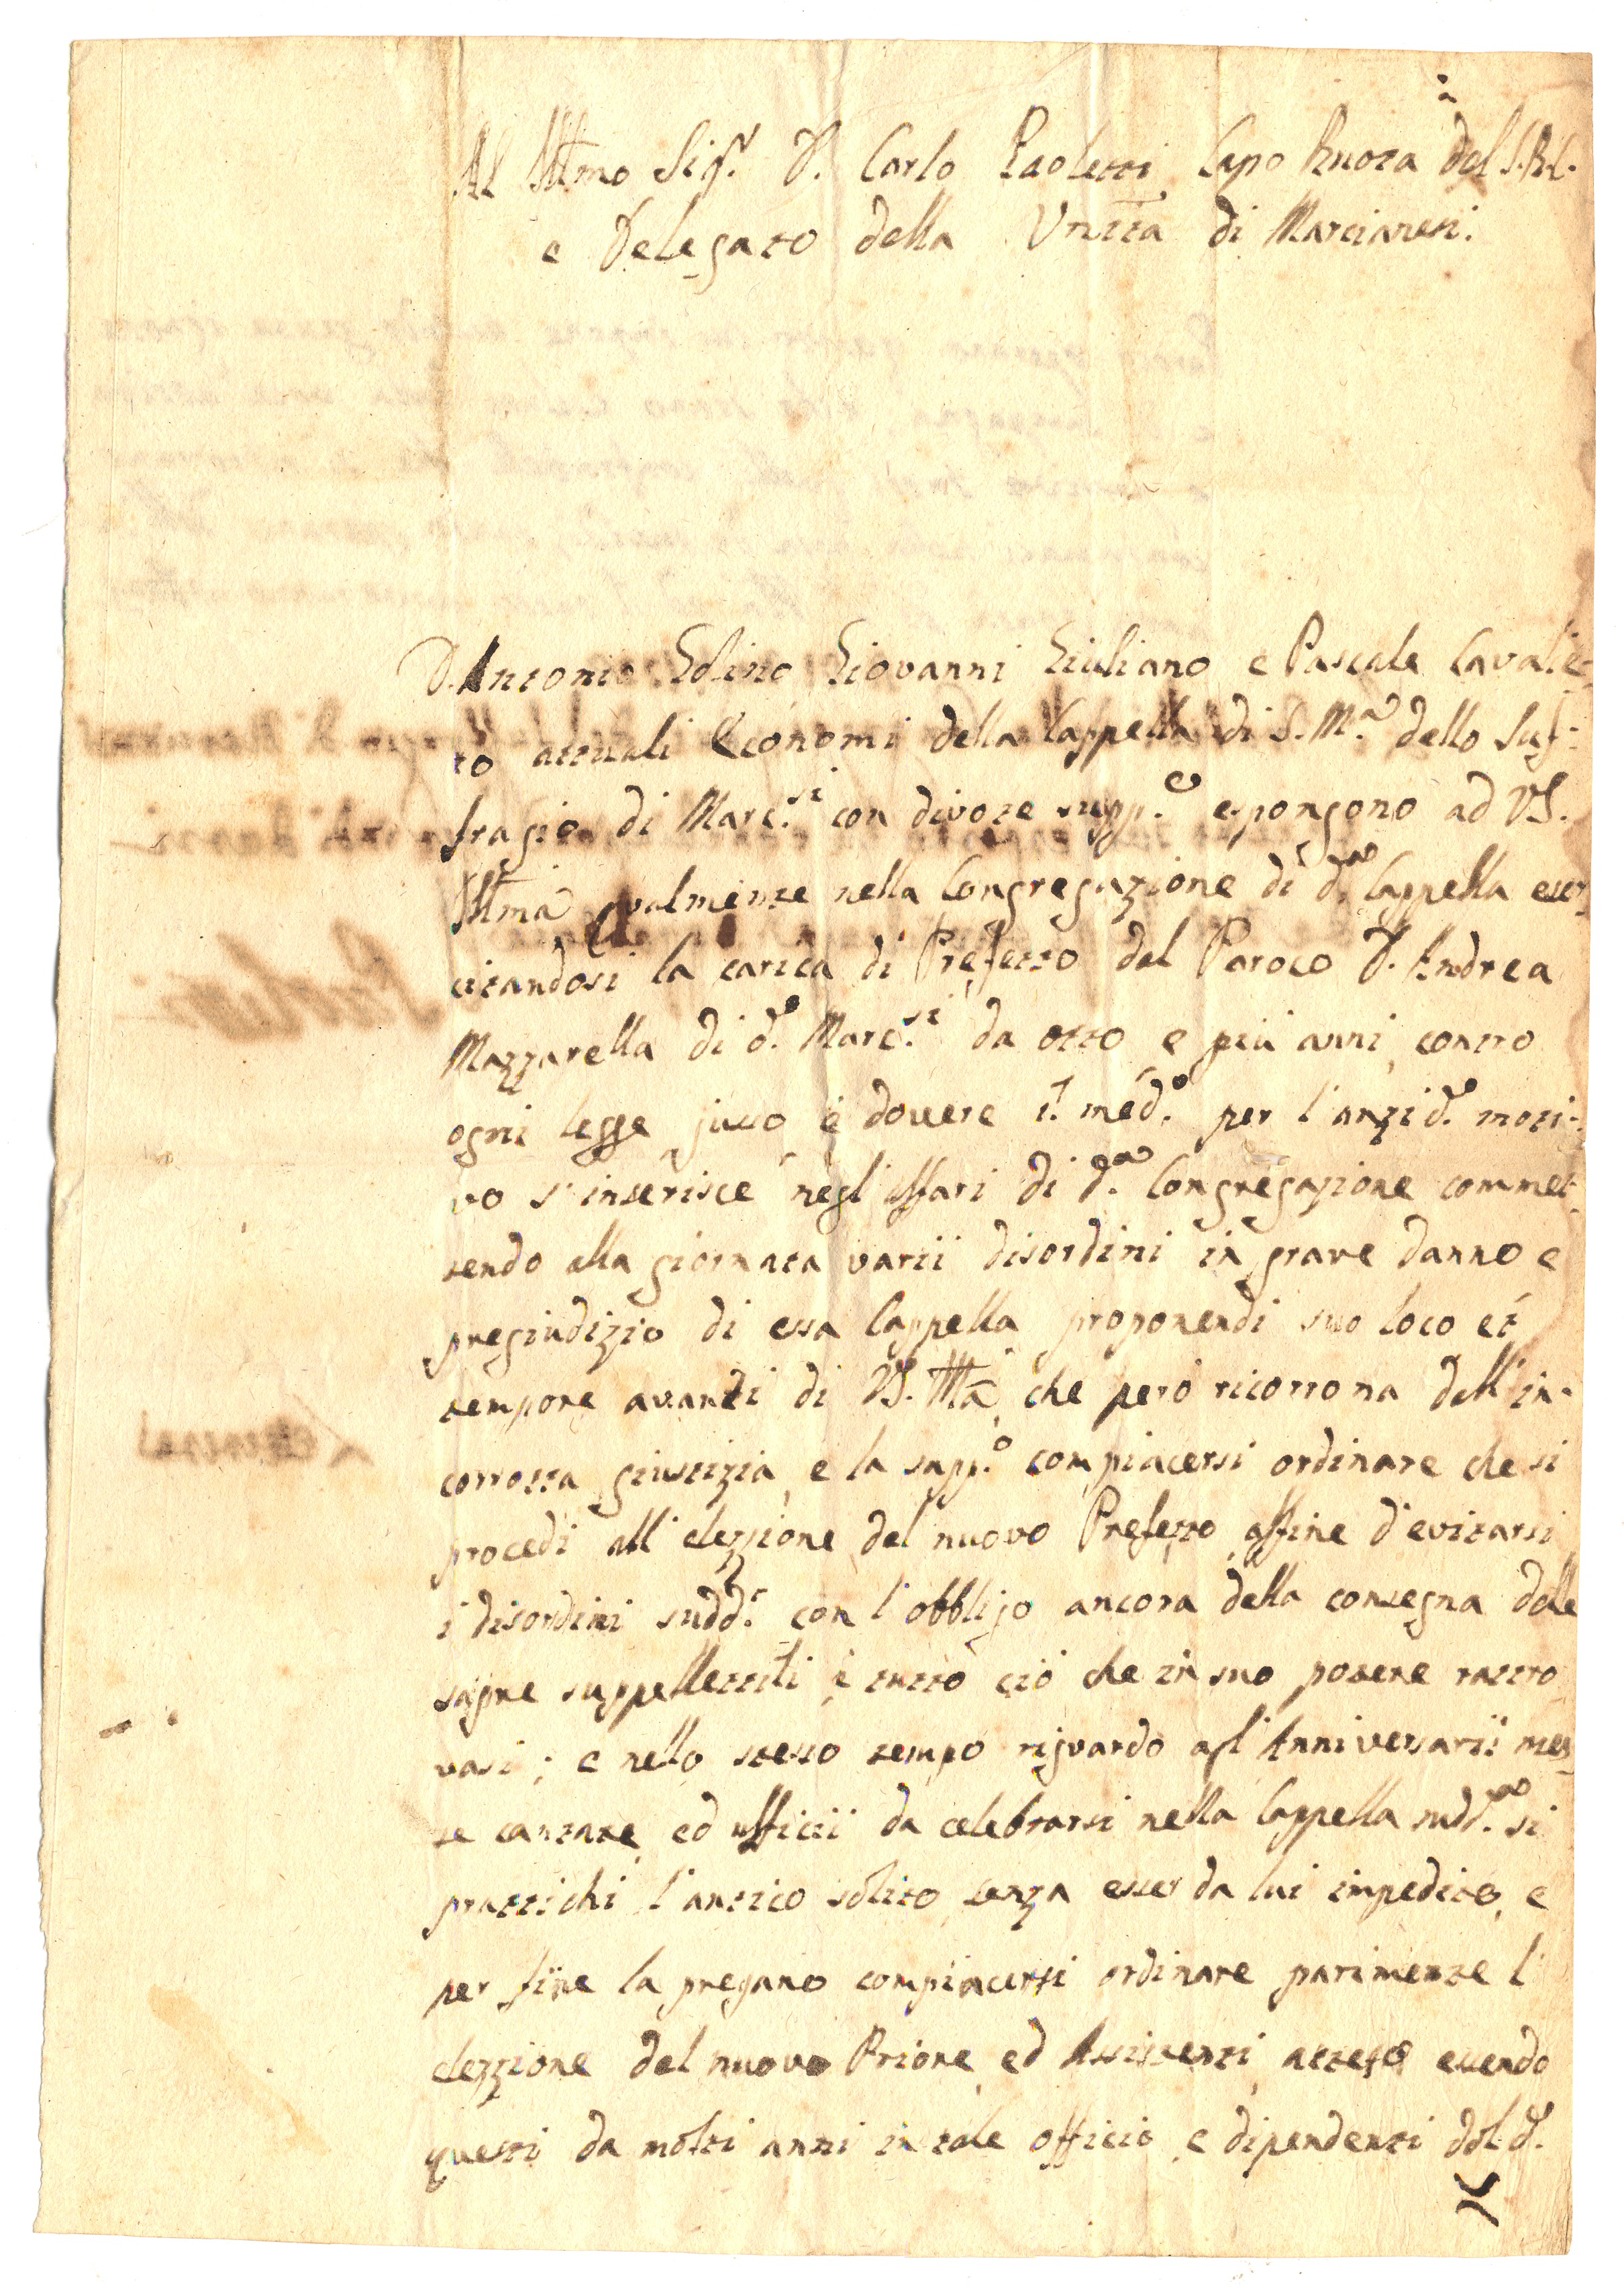 Al Illmo Sig.r D. Carlo Paoletti Capo Ruota del S.R.C.
e Delegato della Unità di Marcianesi.
D. Antonio Giovanni Giuliano e Pascale Cavalie-
ro attuali Economi della Cappella di S. M.a dello Suf-
fragio di Marc.si con divote supp.e espongono ad VS.
Illma qualmente nella Congregazione di d.a Cappella eser-
citandosi la carica di Prefetto dal Paroco D. Andrea
Mazzarella di d.o Marc.si da otto e più anni contro
ogni legge, jusso e dovere i.l med.o per l'anzid.o moti-
vo s'inserisce negl'affari di d.a Congregazione commet-
tendo alla giornata varii disordini in grave danno e
pregiudizio di essa Cappella proponendi suo loco et
tempore avanti di VS. Illma, che però ricorrono dall'in-
corrotta giustizia, e la supp.o compiacersi ordinare che si
procedi all'elezzione del nuovo Prefetto affine d'evitarsi
i disordini sudd.i con l'obbligo ancora della consegna delle
sagre suppellettili e tutto ciò che in suo potere ratro-
vasi; e nello stesso tempo riguardo agl'Anniversarii mes-
se cantate, ed ufficii da celebrarsi nella Cappella sudd.a si
prattichi l'antico solito senza esser da lui impedito, e
per fine la pregano compiacersi ordinare parimente l'
elezzione del nuovo Priore, ed Assistenti, atteso essendo
questi da molti anni in tale officio, e dipendenti dal d.o